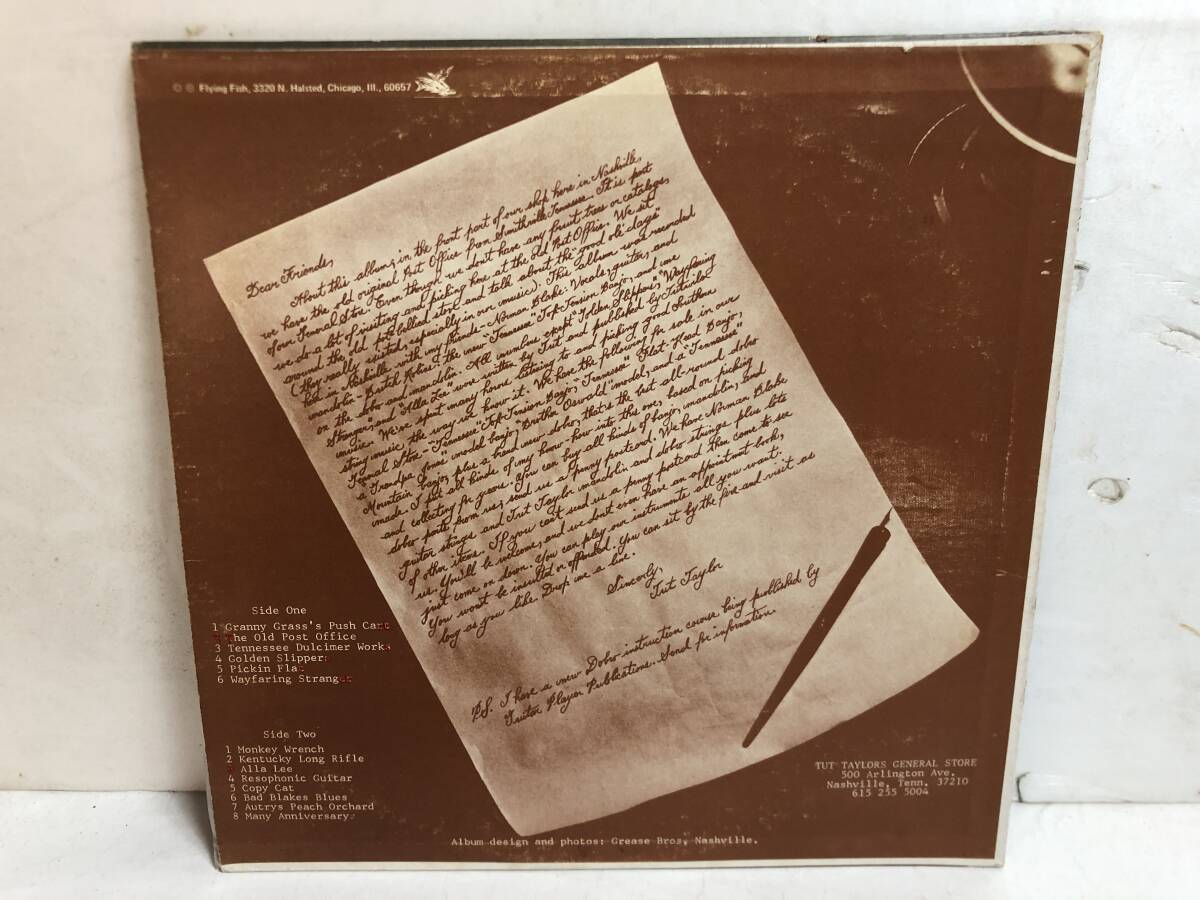 © ℗ Flying Fish, 3320 N. Halsted, Chicago, Ill., 60657
Dear Friends,
About this album; in the front part of our shop here in Nashville,
we have the old original Post Office from Smithville Tennessee. It is part
of our General Store. Even though we don't have any fruit trees or catalogs,
we do a lot of visiting and picking here at the old Post Office. We sit
around the old pot-bellied stove and talk about the "good ole' days"
(they really existed, especially in our music). This album was recorded
live in Nashville with my friends - Norman Blake: Vocals, guitars, and
mandolin - Butch Robins: the new Tennessee "Top-Tension Banjo, and me
on the dobro and mandolin. All numbers except "Golden Slippers," "Wayfaring
Stranger, and "Alla Lee" were written by Tut and published by Tutunlo
music. We've spent many hours listening to and picking good Southern
string music, the way we know it. We have the following for sale in our
General Store - Tennessee "Top-Tension Banjo," Tennessee "Flat-Head Banjo,
a "Grandpa Jones" model banjo, "Brother Oswald" model, and a "Tennessee"
Mountain banjo, plus a brand new dobro, that's the best all-round dobro
made. I put all kinds of my know-how into this one, based on picking
and collecting for years. You can buy all kinds of banjo, mandolin, and
dobro parts from us; send us a penny postcard. We have Norman Blake
guitar strings and Tut Taylor mandolin and dobro strings plus lots
of other items. If you can't send us a penny postcard then come to see
us. You'll be welcome, and we don't even have an appointment book,
just come on down. You can play our instruments all you want.
You won't be insulted or offended. You can sit by the fire and visit as
long as you like. Drop me a line.
Sincerly,
Tut Taylor
P.S. I have a new Dobro instruction course being published by
Guitar Player Publications. Send for information.
Side One
1 Granny Grass's Push Cart
2 The Old Post Office
3 Tennessee Dulcimer Works
4 Golden Slippers
5 Pickin Flat
6 Wayfaring Stranger
Side Two
1 Monkey Wrench
2 Kentucky Long Rifle
3 Alla Lee
4 Resophonic Guitar
5 Copy Cat
6 Bad Blakes Blues
7 Autrys Peach Orchard
8 Many Anniversarys
TUT TAYLORS GENERAL STORE
500 Arlington Ave.
Nashville, Tenn. 37210
615 255 5004
Album design and photos: Grease Bros, Nashville.